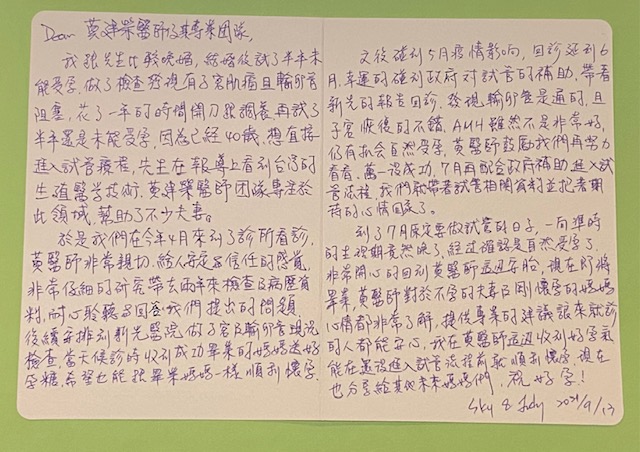 Dear 黃建榮醫師及其專業團隊,
我跟先生比較晚婚, 結婚後試了半年未
能受孕, 做了檢查發現有子宮肌瘤且輸卵管
阻塞, 花了一年的時間開刀跟調養再試了
半年還是未能受孕, 因為已經40歲, 想直接
進入試管療程, 先生在報導上看到台灣的
生殖醫學技術, 黃建榮醫師團隊專注於
此領域, 幫助了不少夫妻。
於是我們在今年4月來到了診所看診,
黃醫師非常親切, 給人安定及信任的感覺,
非常仔細的研究帶去兩年來檢查及病歷資
料, 耐心聆聽及回答我們提出的問題,
後續安排到新光醫院做子宮及輸卵管現況
檢查, 當天候診時收到成功畢業的媽媽送好
孕糖, 希望也能跟畢業媽媽一樣順利懷孕,
之後碰到5月疫情影响, 回診延到6
月, 幸運的碰到政府對試管的補助, 帶着
新光的報告回診, 發現輸卵管是通的, 且
子宮恢後的不錯, AMH雖然不是非常好,
仍有机会自然受孕, 黃醫師鼓勵我們再努力
看看, 萬一沒成功, 7月再配合政府補助進入試
管流程, 我們就帶著試管相關資料並抱著期
待的心情回家了。
到了7月原定要做試管的日子, 一向準時
的生理期竟然晚了, 經过確認是自然受孕了,
非常開心的回到黃醫師這边安胎, 現在即將
畢業, 黃醫師對於不孕的夫妻及剛懷孕的媽媽
心情都非常了解, 提供專業的建議讓來就診
的人都能安心, 我在黃醫師這边收到好孕氣
能在還沒進入試管流程前就順利懷孕, 現在
也分享給其他未來媽媽們, 祝好孕!
Sky & Judy 2021/9/13